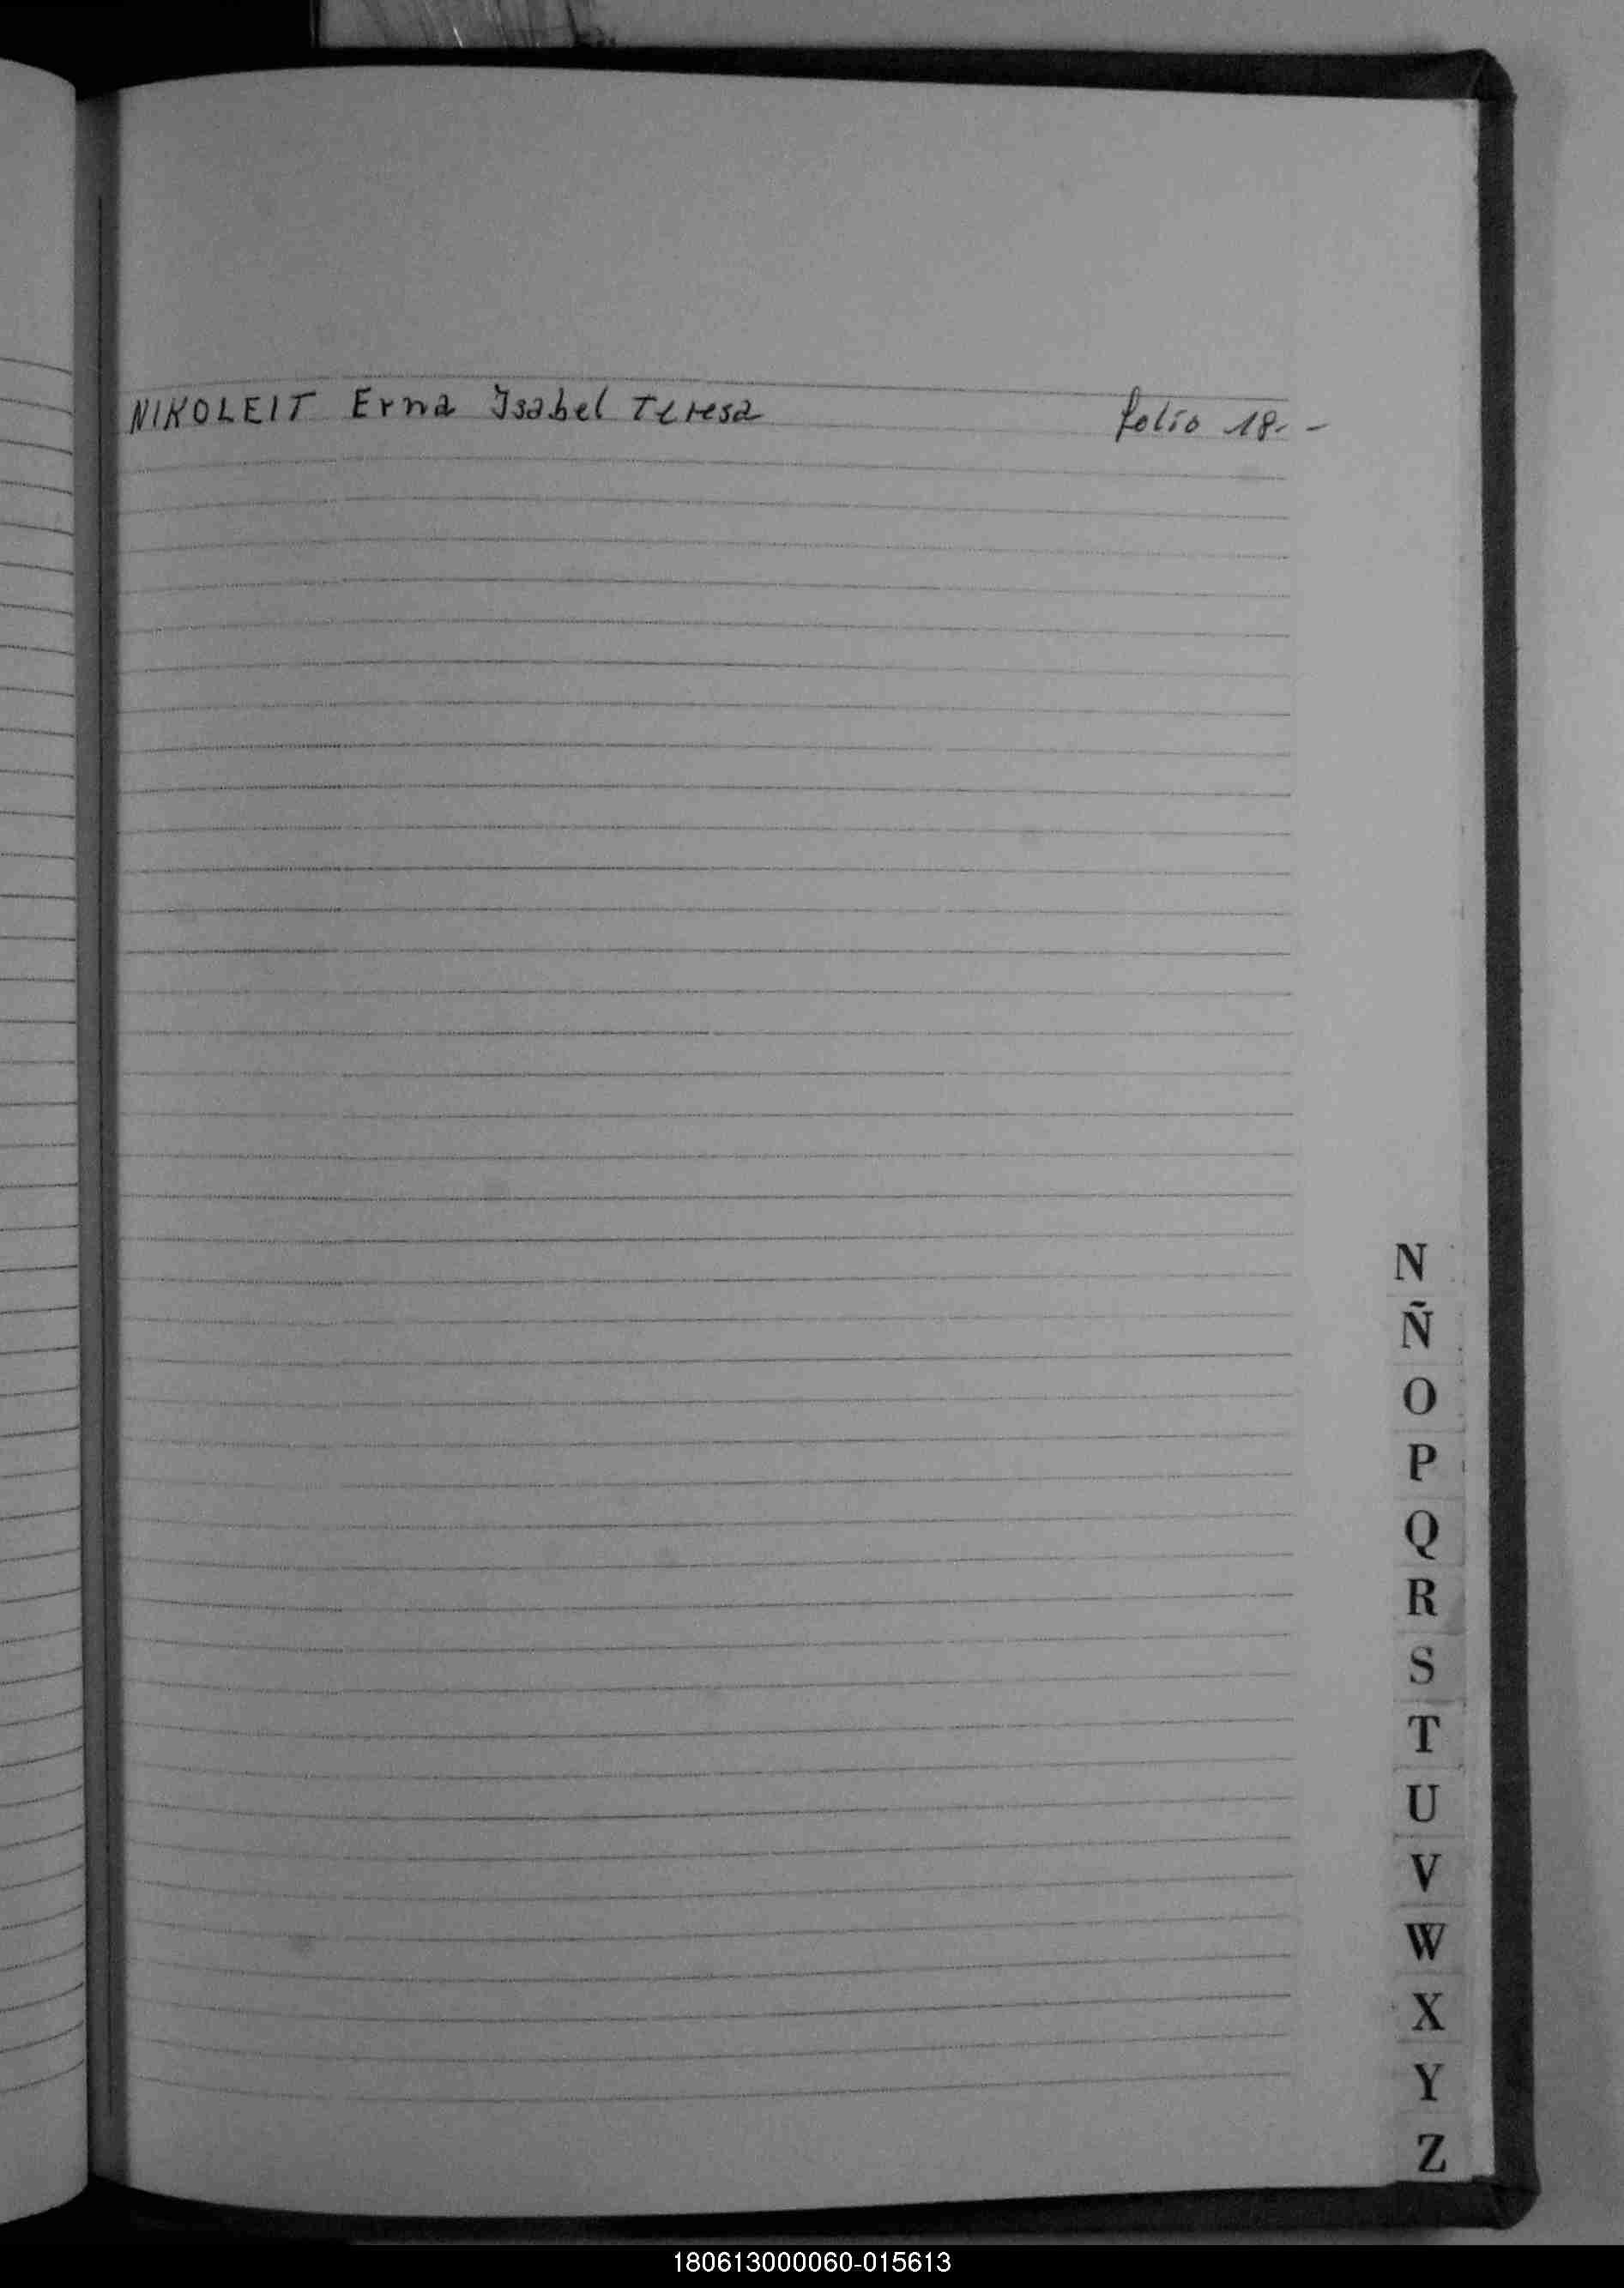 NIKOLEIT Erna Isabel Teresa folio 18.- -
N
Ñ
O
P
Q
R
S
T
U
V
W
X
Y
Z
180613000060-015613